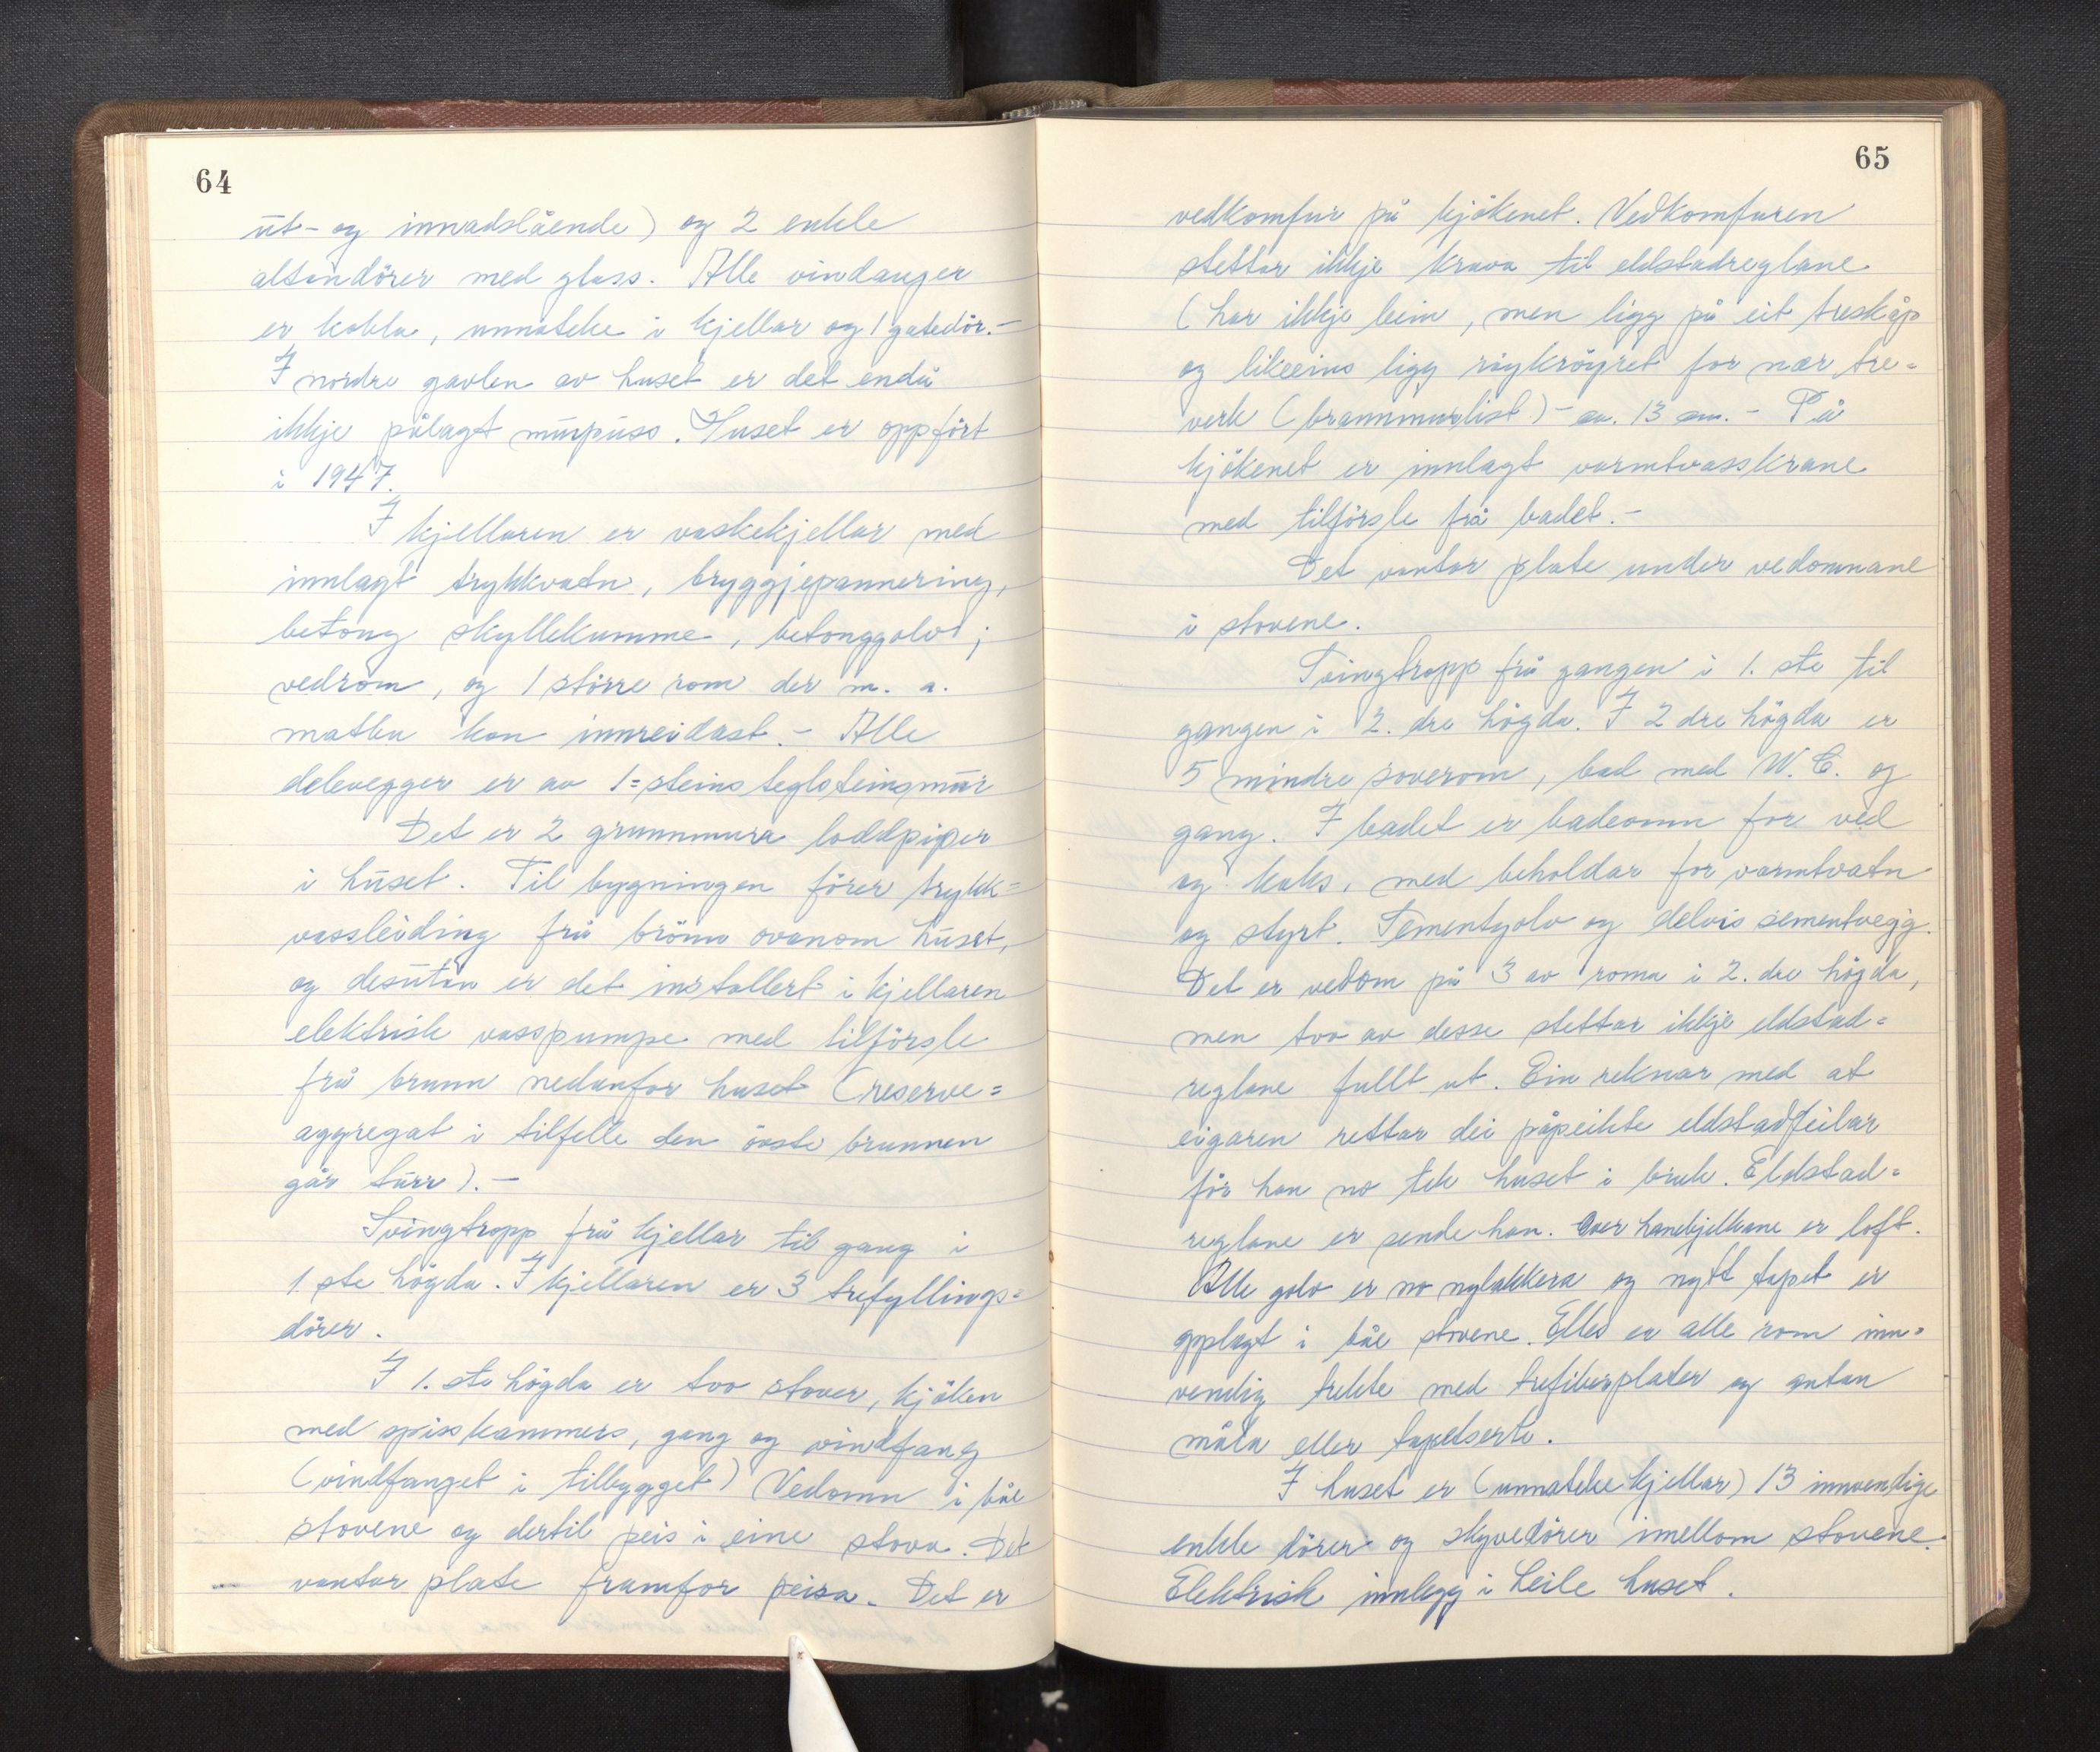 64
ut- og innadslåande) og 2 enkle
altandörer med glass. Alle vindauger
er kobla, unnateke i kjellar og 1 gatedör.-
I nordre gavlen av huset er det endå
ikkje pålagt murpuss. Huset er oppfört
i 1947.
I kjellaren er vaskekjellar med
innlagt trykkvatn, bryggjepannering,
betong skyllekumme, betonggolv;
vedrom, og 1 större rom der m. a.
matbu kan innreidast.- Alle
delevegger er av 1=steins teglsteinsmur
Det er 2 grunnmura loddpiper
i huset. Til bygningen förer trykk=
vassleiding frå brönn ovanom huset,
og desutan er det installert i kjellaren
elektrisk vasspumpe med tilförsle
frå brunn nedanfor huset (reserve=
aggregat i tilfelle den övste brunnen
går turr).-
Svingtropp frå kjellar til gang i
1.ste högda. I kjellaren er 3 trefyllings=
dörer.
I 1.ste högda er tvo stover, kjöken
med spisskammers, gang og vindfang
(vindfanget i tilbygget) Vedomn i båe
stovene og dertil peis i eine stova. Det
vantar plate framfor peisa. Det er
65
vedkomfur på kjökenet. Vedkomfuren
stettar ikkje krava til eldstadreglane
(har ikkje bein, men ligg på eit treskåp
og likeeins ligg röykröyret for nær tre=
verk (brannmurlist)- ca. 13 cm.- På
kjökenet er innlagt varmtvasskrane
med tilförsle frå badet.-
Det vantar plate under vedomnane
i stovene.
Svingtropp frå gangen i 1. ste til
gangen i 2. dre högda. I 2 dre högda er
5 mindre soverom, bad med W.C. og
gang. I badet er badeomn for ved
og koks, med behaldar for varmtvatn
og styrt. Sementgolv og delvis sementvegg.
Det er vedomn på 3 av roma i 2. dre högda,
men tvo av desse stettar ikkje eldstad=
reglane fullt ut. Ein reknar med at
eigaren rettar dei påpeikte eldstadfeilar
för han no tek huset i bruk. Eldstad=
reglane er sende han. Over hanebjelkane er loft.
Alle golv er no nylakkera og nytt tapet er
pålagt i båe stovene. Elles er alle rom inn=
vendig trekte med trefiberplater og antan
måla eller tapetserte.
I huset er (unnateke kjellar) 13 innvendige
enkle dörer og skyvedörer imellom stovene.
Elektrisk innlegg i heile huset.